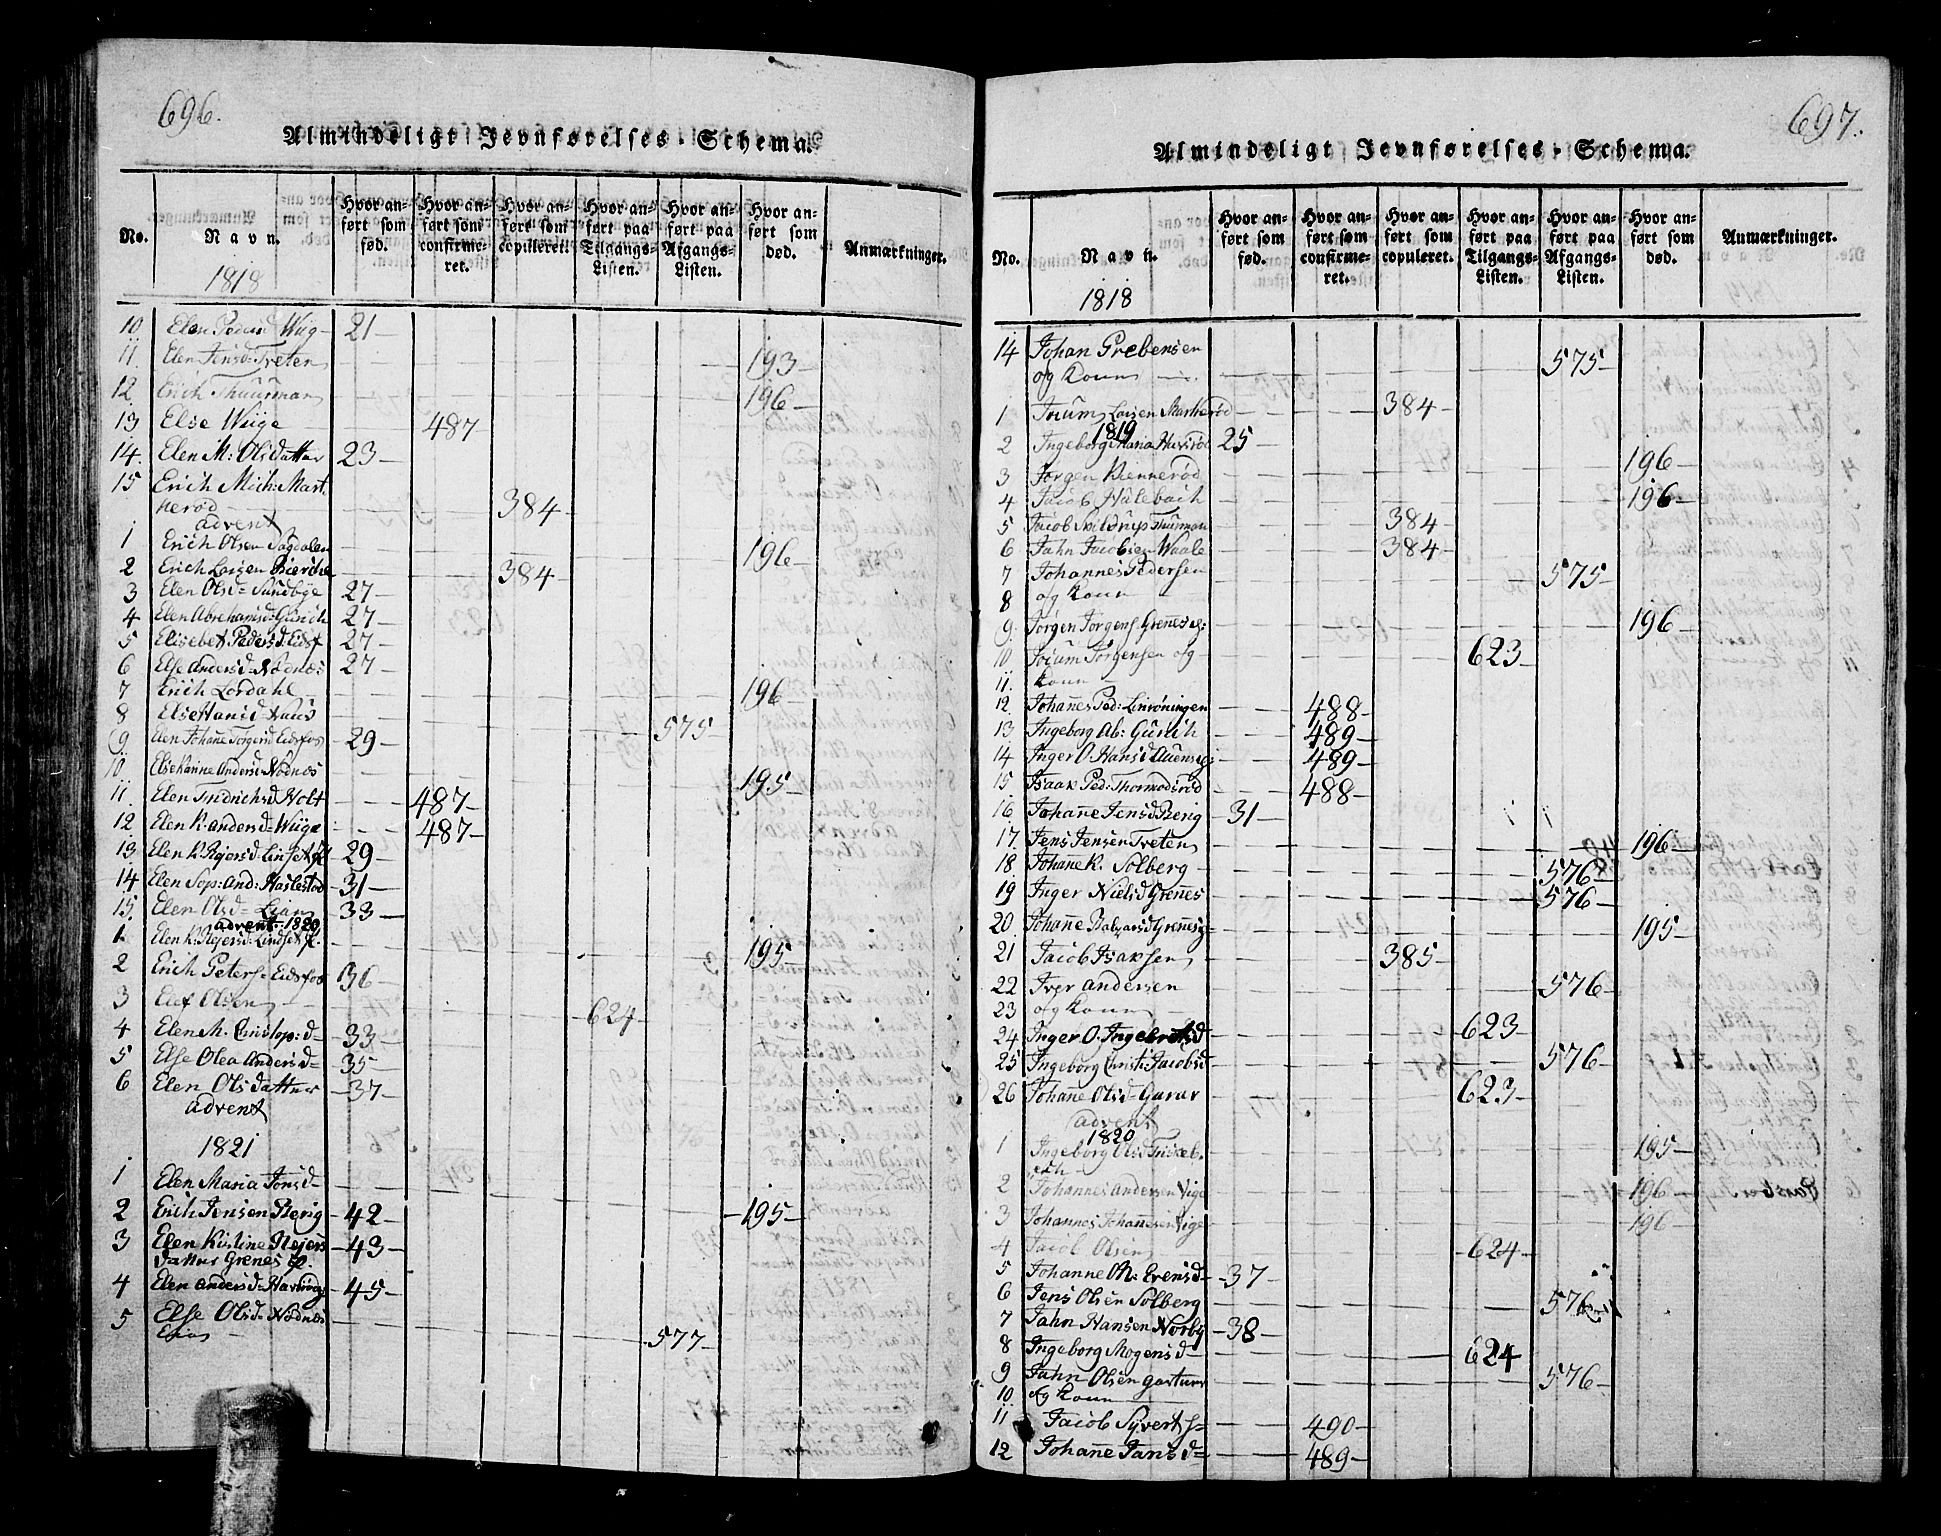 696.
Almindeligt Jevnførelses-Schema.
No.
Navn.
1818
Hvor anført som fød.
Hvor anført som confirmeret.
Hvor anført som copuleret.
Hvor anført paa Tilgangs-Listen.
Hvor anført paa Afgangs-Listen.
Hvor anført som død.
Anmærkninger.
10 Elen Pedersd Wiig 21
11. Elen Jensd: Treten 193
12 Erich Thuurman 196
13 Else Wiige 487
14. Elen M: Olsdatter 23
15 Erich Mich: Mart
herød 384
advent
1 Erich Olsen Sogdalen 196
2 Erich Larsen 384
3 Elen Olsd= Sundbye 27
4 Elen Abrehamsd: Gurich 27
5 Elisebet Pedersd Eidsf 27
6 Else Andersd= Nødnæs 27
7 Erich Lordahl 196
8 Else Hansd= 575
9 Elen Johañe Torgersd Eidsfos 29
10. Else Karine Andersd= Nødnæs 195
11. Elen Fridrichsd Holt 487
12 Elen K. Andersd= Wiige 487
13 Elen K. Rejersd= 29
14 Elen Sop: And: Haslestad 31
15 Elen Olsd= Lian 33
advent. 1820
1. Elen K: Rejersd: 195
2 Erich Peters= Eidsfos 36
3 Olsen 624
4 Elen M. Christop: d= 33
5 Else Olea Andersd= 35
6 Elen Olsdatter 37
advent
1821
1 Elen Maria Jonsd=
2 Erich Jensen Berig 42 195
3 Elen Kistine Rejers 43
datter Grenes
4 Elen Andersd= 45
5 Else Olsd= Nødnæs
577
697.
Almindeligt Jevnførelses-Schema.
No.
Navn.
1818
Hvor anført som fød.
Hvor anført som confirmeret.
Hvor anført som copuleret.
Hvor anført paa Tilgangs-Listen.
Hvor anført paa Afgangs-Listen.
Hvor anført som død.
Anmærkninger.
14 Johan Prebensen 575
og Kone
1 Larsen Martherød 384
1819
2 Ingeborg Maria 25
3 Jørgen Kiennerød 196
4 Jacob Hulebach 196
5 Jacob Thurman 384
6 Jahn Jacobsen Waale 384
7 Johannes Pedersen 575
8 og Kone
9. Jørgen Jørgens 196
10 Jørgensen og 623
11. Kone
12 Johañes Ped: Linrøningen 488
13 Ingeborg Ab: Gurich 489
14 Inger O. Hansd 489
15 Isaak Ped: Thormodsrød 488
16 Johañe Jensd Berig 31
17. Jens Jensen Treten 196
18. Johane K. Solberg 576
19 Inger Nielsd Grenes 576
20 Johañe 195
21 Jacob Isaksen 385
22 Iver Andersen 576
23 og Kone
24 Inger O. Ingebretsd 623
25 Ingeborg Christi: Jacobsd 576
26 Johañe Olsd= Garar 623
advent
1820
1 Ingeborg Olsd 195
2 Johannes Andersen Vige 196
3 Johannes Johannesen Vige 196
4 Jacob Olsen 624
5 Johanne M: Evensd 37
6 Jens Olsen Solberg 576
7 Jahn Hansen Norby 38
8 Ingeborg Mogensd 624
9 Jahn Olsen 576
10 og Kone
11 Jacob Syverts= 490
12 Johañe Jansd= 489